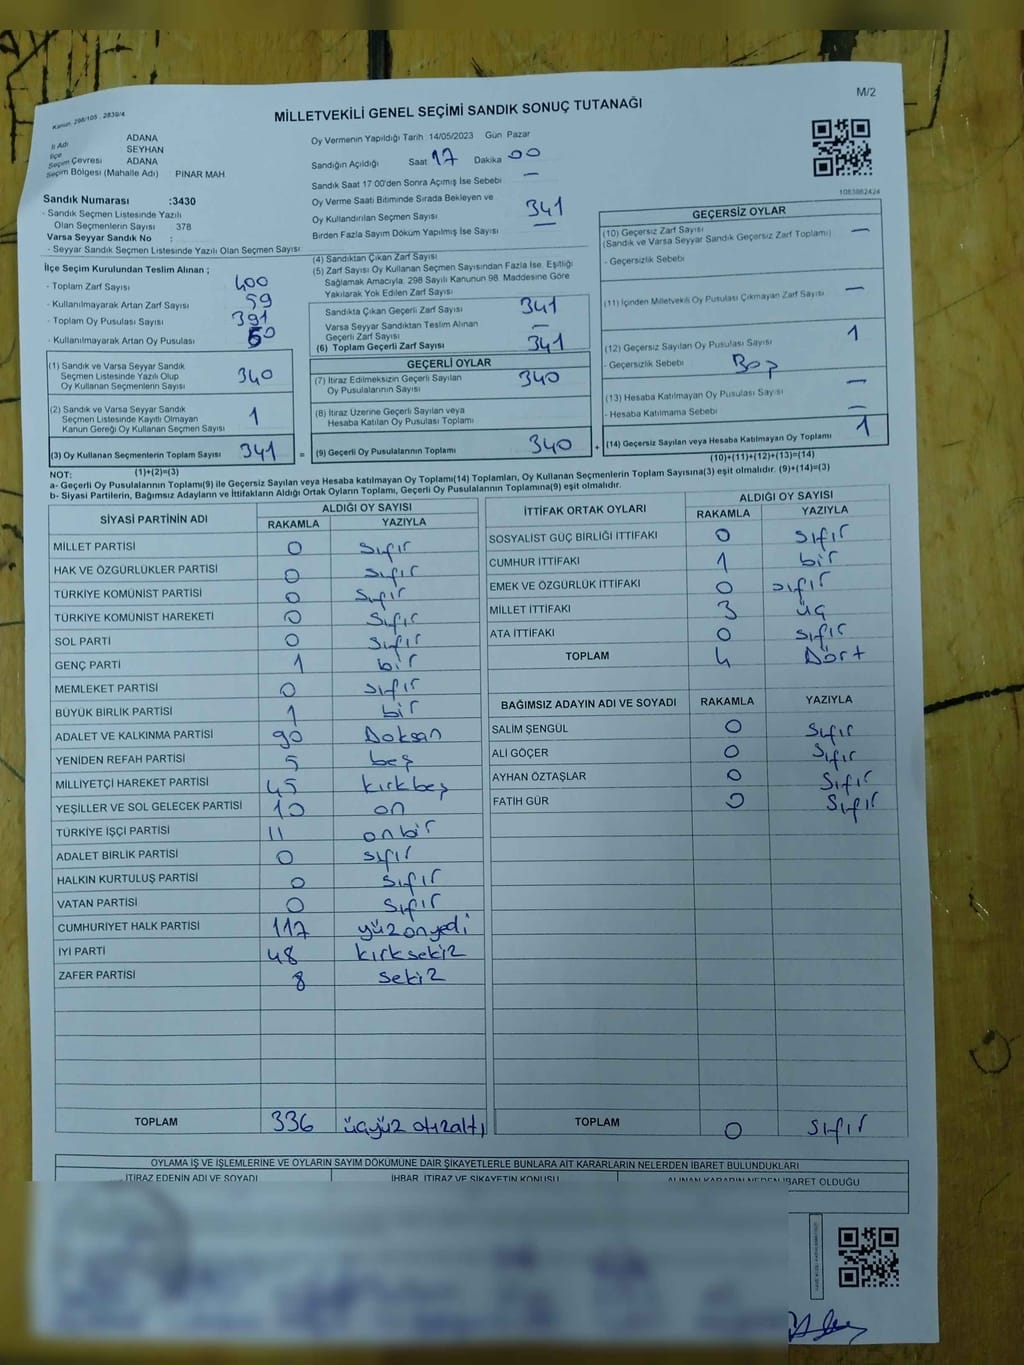 M/2
Kanun. 298/105 . 2839/4
MİLLETVEKİLİ GENEL SEÇİMİ SANDIK SONUÇ TUTANAĞI
İl Adı ADANA
İlçe SEYHAN
Seçim Çevresi ADANA
Seçim Bölgesi (Mahalle Adı) : PINAR MAH
Oy Vermenin Yapıldığı Tarih 14/05/2023 Gün Pazar
Sandığın Açıldığı Saat 17 Dakika 00
Sandık Saat 17:00'den Sonra Açımış İse Sebebi —
Oy Verme Saati Bitiminde Sırada Bekleyen ve
Oy Kullandırılan Seçmen Sayısı 341
Birden Fazla Sayım Döküm Yapılmış İse Sayısı —
1083862424
Sandık Numarası :3430
- Sandık Seçmen Listesinde Yazılı
Olan Seçmenlerin Sayısı : 378
Varsa Seyyar Sandık No :
- Seyyar Sandık Seçmen Listesinde Yazılı Olan Seçmen Sayısı:
İlçe Seçim Kurulundan Teslim Alınan ;
- Toplam Zarf Sayısı 400
- Kullanılmayarak Artan Zarf Sayısı 59
- Toplam Oy Pusulası Sayısı 391
- Kullanılmayarak Artan Oy Pusulası 50
(1) Sandık ve Varsa Seyyar Sandık
Seçmen Listesinde Yazılı Olup
Oy Kullanan Seçmenlerin Sayısı 340
(2) Sandık ve Varsa Seyyar Sandık
Seçmen Listesinde Kayıtlı Olmayan
Kanun Gereği Oy Kullanan Seçmen Sayısı 1
(3) Oy Kullanan Seçmenlerin Toplam Sayısı 341 =
(1)+(2)=(3)
(4) Sandıktan Çıkan Zarf Sayısı
(5) Zarf Sayısı Oy Kullanan Seçmen Sayısından Fazla İse, Eşitliği
Sağlamak Amacıyla, 298 Sayılı Kanunun 98. Maddesine Göre
Yakılarak Yok Edilen Zarf Sayısı
Sandıkta Çıkan Geçerli Zarf Sayısı 341
Varsa Seyyar Sandıktan Teslim Alınan
Geçerli Zarf Sayısı —
(6) Toplam Geçerli Zarf Sayısı 341
GEÇERLİ OYLAR
(7) İtiraz Edilmeksizin Geçerli Sayılan
Oy Pusulalarının Sayısı 340
(8) İtiraz Üzerine Geçerli Sayılan veya
Hesaba Katılan Oy Pusulası Toplamı
(9) Geçerli Oy Pusulalarının Toplamı 340 +
GEÇERSİZ OYLAR
(10) Geçersiz Zarf Sayısı —
(Sandık ve Varsa Seyyar Sandık Geçersiz Zarf Toplamı)
- Geçersizlik Sebebi
(11) İçinden Milletvekili Oy Pusulası Çıkmayan Zarf Sayısı —
(12) Geçersiz Sayılan Oy Pusulası Sayısı 1
- Geçersizlik Sebebi Boş
(13) Hesaba Katılmayan Oy Pusulası Sayısı —
- Hesaba Katılmama Sebebi —
(14) Geçersiz Sayılan veya Hesaba Katılmayan Oy Toplamı 1
(10)+(11)+(12)+(13)=(14)
NOT:
a- Geçerli Oy Pusulalarının Toplamı(9) ile Geçersiz Sayılan veya Hesaba katılmayan Oy Toplamı(14) Toplamları, Oy Kullanan Seçmenlerin Toplam Sayısına(3) eşit olmalıdır. (9)+(14)=(3)
b- Siyasi Partilerin, Bağımsız Adayların ve İttifakların Aldığı Ortak Oyların Toplamı, Geçerli Oy Pusulalarının Toplamına(9) eşit olmalıdır.
SİYASİ PARTİNİN ADI ALDIĞI OY SAYISI
RAKAMLA YAZIYLA
MİLLET PARTİSİ 0 sıfır
HAK VE ÖZGÜRLÜKLER PARTİSİ 0 sıfır
TÜRKİYE KOMÜNİST PARTİSİ 0 sıfır
TÜRKİYE KOMÜNİST HAREKETİ 0 sıfır
SOL PARTİ 0 sıfır
GENÇ PARTİ 1 bir
MEMLEKET PARTİSİ 0 sıfır
BÜYÜK BİRLİK PARTİSİ 1 bir
ADALET VE KALKINMA PARTİSİ 90 Doksan
YENİDEN REFAH PARTİSİ 5 beş
MİLLİYETÇİ HAREKET PARTİSİ 45 kırkbeş
YEŞİLLER VE SOL GELECEK PARTİSİ 10 on
TÜRKİYE İŞÇİ PARTİSİ 11 onbir
ADALET BİRLİK PARTİSİ 0 sıfır
HALKIN KURTULUŞ PARTİSİ 0 sıfır
VATAN PARTİSİ 0 sıfır
CUMHURİYET HALK PARTİSİ 117 yüzonyedi
İYİ PARTİ 48 kırksekiz
ZAFER PARTİSİ 8 sekiz
TOPLAM 336 üçyüz otuzaltı
İTTİFAK ORTAK OYLARI ALDIĞI OY SAYISI
RAKAMLA YAZIYLA
SOSYALİST GÜÇ BİRLİĞİ İTTİFAKI 0 sıfır
CUMHUR İTTİFAKI 1 bir
EMEK VE ÖZGÜRLÜK İTTİFAKI 0 sıfır
MİLLET İTTİFAKI 3 üç
ATA İTTİFAKI 0 sıfır
TOPLAM 4 Dört
BAĞIMSIZ ADAYIN ADI VE SOYADI RAKAMLA YAZIYLA
SALİM ŞENGÜL 0 sıfır
ALİ GÖÇER 0 sıfır
AYHAN ÖZTAŞLAR 0 sıfır
FATİH GÜR 0 sıfır
TOPLAM 0 sıfır
OYLAMA İŞ VE İŞLEMLERİNE VE OYLARIN SAYIM DÖKÜMÜNE DAİR ŞİKAYETLERLE BUNLARA AİT KARARLARIN NELERDEN İBARET BULUNDUKLARI
İTİRAZ EDENİN ADI VE SOYADI İHBAR, İTİRAZ VE ŞİKAYETİN KONUSU ALINAN KARARIN NEDEN İBARET OLDUĞU